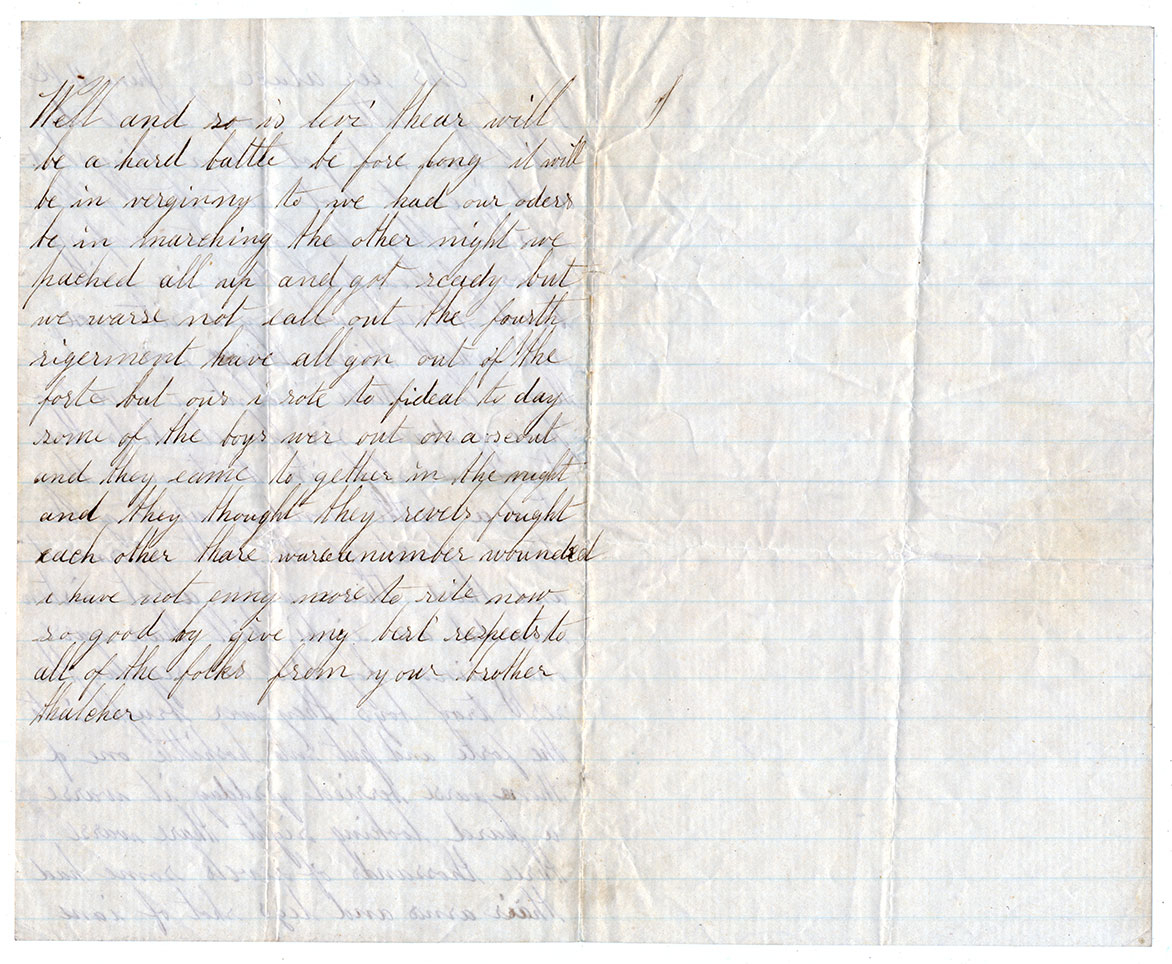 Well and so is levi thear will
be a hard battle be fore long it will
be in verginny to we had our oders
be in marching the other night we
packed all up and got ready but
we warse not call out the fourth
rigerment have all gon out of the
forte but our i rote to fideal to day
some of the boys wer out on a scout
and they came to gether in the night
and they thought they revels fought
each other thare warse number wounded
i have not enny more to rite now
so good by give my best respects to
all of the folks from your brother
thatcher